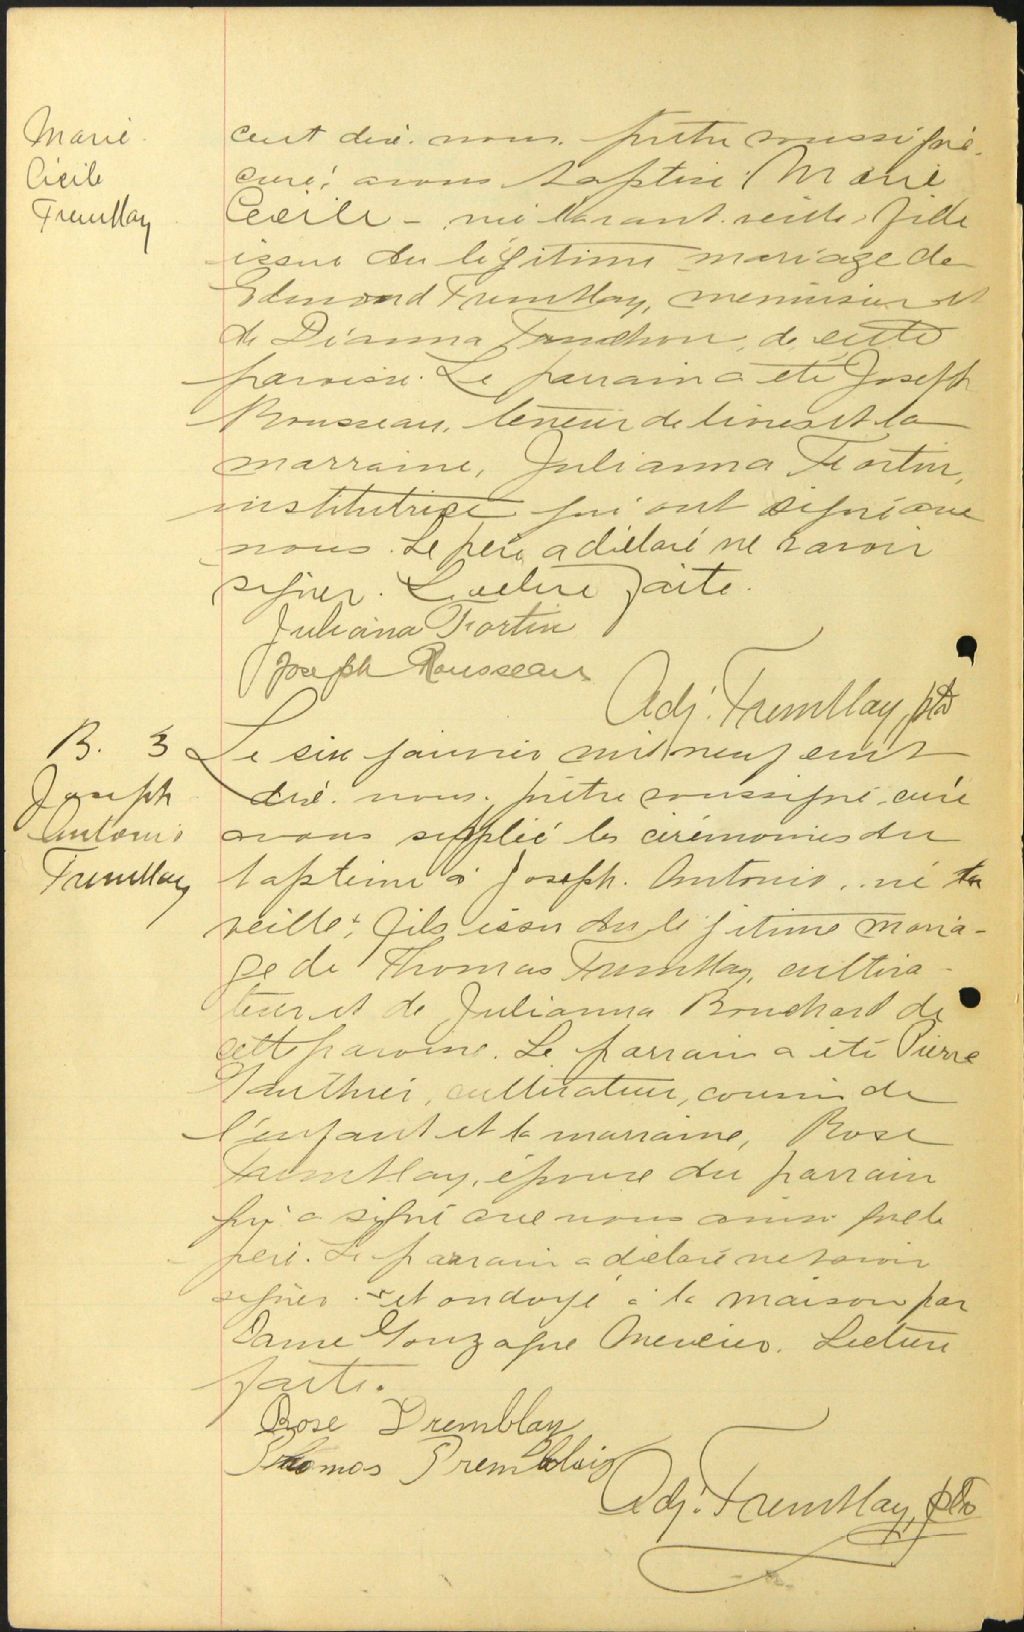 Marie
Cécile
Tremblay
cent dix. nous. prêtre soussigné,
curé, avons baptisé Marie
Cécile - née l'avant veille, fille
issue du légitime mariage de
Edmond Tremblay, menuisier et
de Dianna de cette
paroisse. Le parrain a été Joseph
Rousseau, teneur de livres et la
marraine, Julianna Fortin,
institutrice qui ont signé avec
nous. Le père a déclaré ne savoir
signer. Lecture faite.
Juliana Fortin
Joseph Rousseau
Adj. Tremblay, ptre
B. 3
Joseph
Antonio
Tremblay
Le six janvier mil neuf cent
dix. nous. prêtre soussigné, curé
avons supplié les cérémonies du
baptême à Joseph. Antonio, né la
veille+, fils issu du légitime maria-
ge de Thomas Tremblay, cultiva-
teur et de Julianna Bouchard de
cette paroisse. Le parrain a été Pierre
Gauthier, cultivateur, cousin de
l'enfant et la marraine, Rose
Tremblay, épouse du parrain
qui a signé avec nous ainsi que le
père. Le parrain a déclaré ne savoir
signer. + et ondoyé à la maison par
Dame Gonzague Mercier. Lecture
faite.
Rose Tremblay
Thomas Tremblay
Adj. Tremblay, ptre